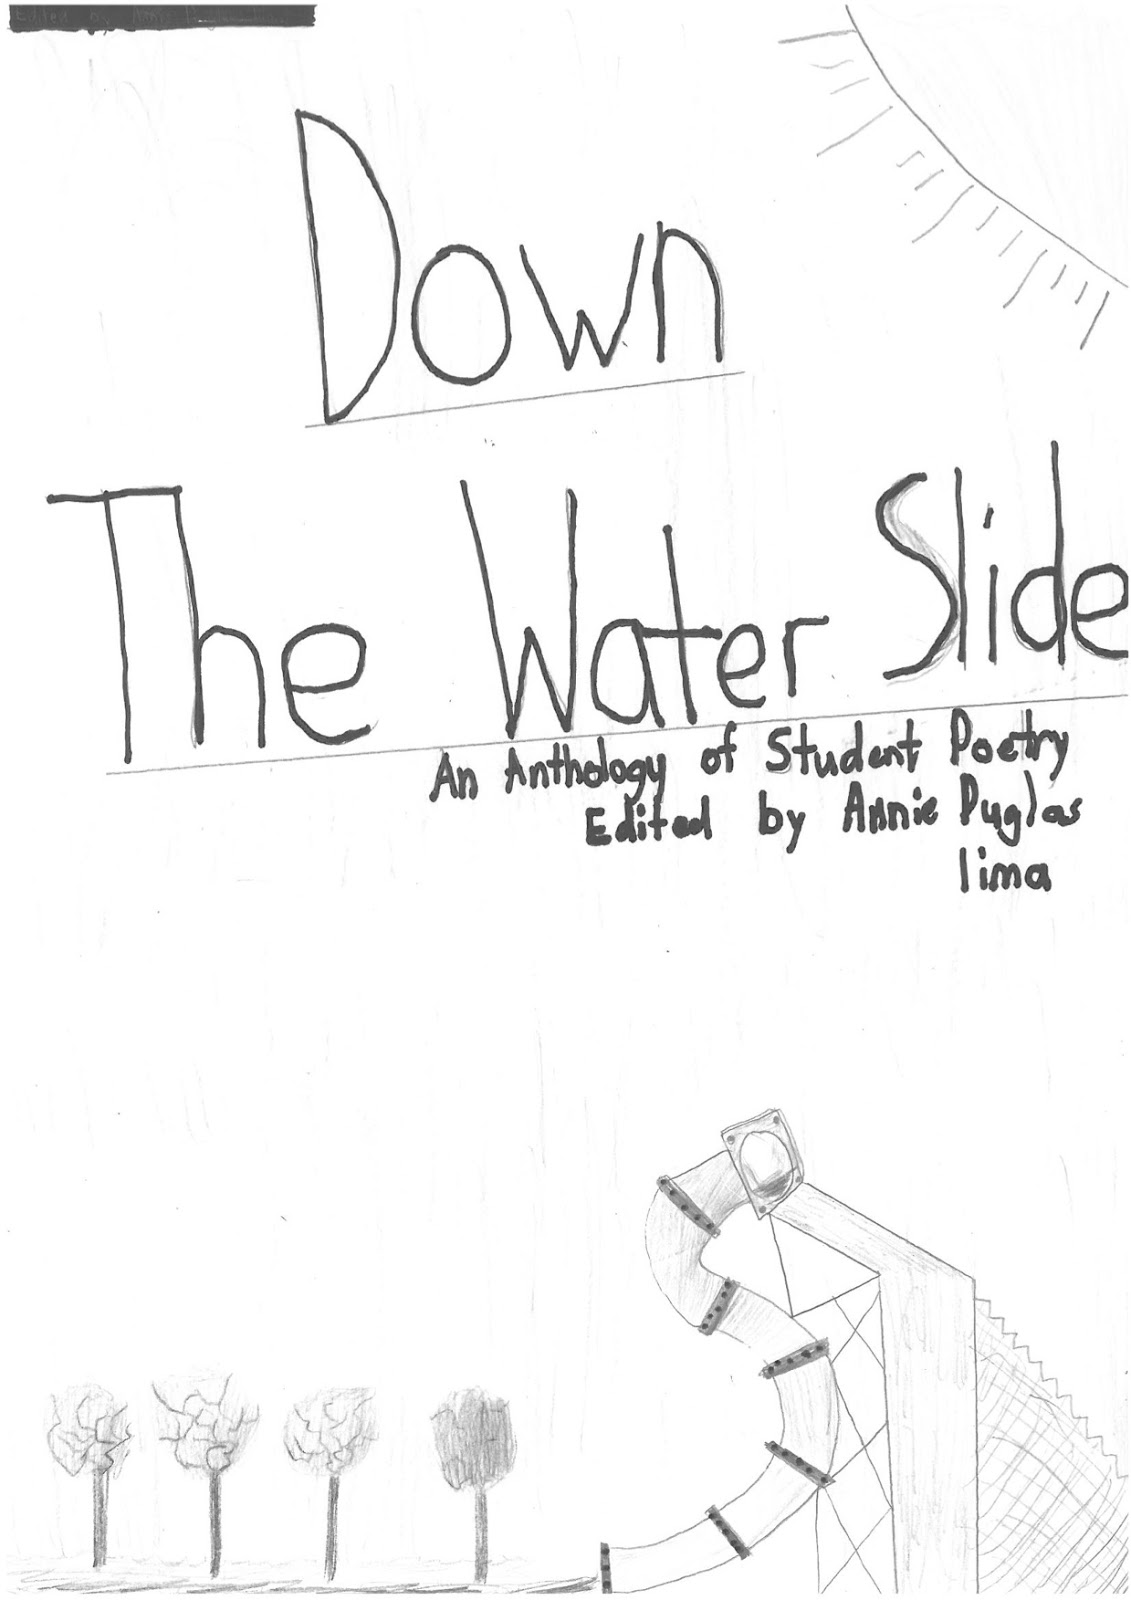 Edited by Annie
Down
The Water Slide
An Anthology of Student Poetry
Edited by Annie Puglas
lima